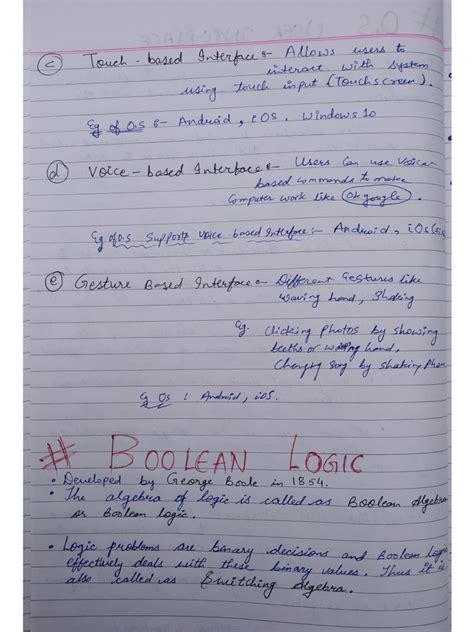 (c) Touch - based Interface :- Allows users to
interact with system
using touch input (Touchscreen).
Eg of O.S :- Android, iOS. Windows 10
(d) Voice - based Interface :- Users Can use Voice
based commands to make
Computer work like (Ok google).
Eg of O.S Supports Voice based Interface :- Android, iOS
(e) Gesture Based Interface :- Different Gestures like
waving hand, Shaking
Eg. Clicking photos by showing
teeths or waving hand,
Changing song by shaking Phone
Eg OS : Android, iOS.
# BOOLEAN LOGIC
• Developed by George Boole in 1854.
• The algebra of logic is called as Boolean Algebra
or Boolean logic.
• Logic problems are binary decisions and Boolean Logic
effectively deals with these binary values. Thus it is
also called as Switching Algebra.